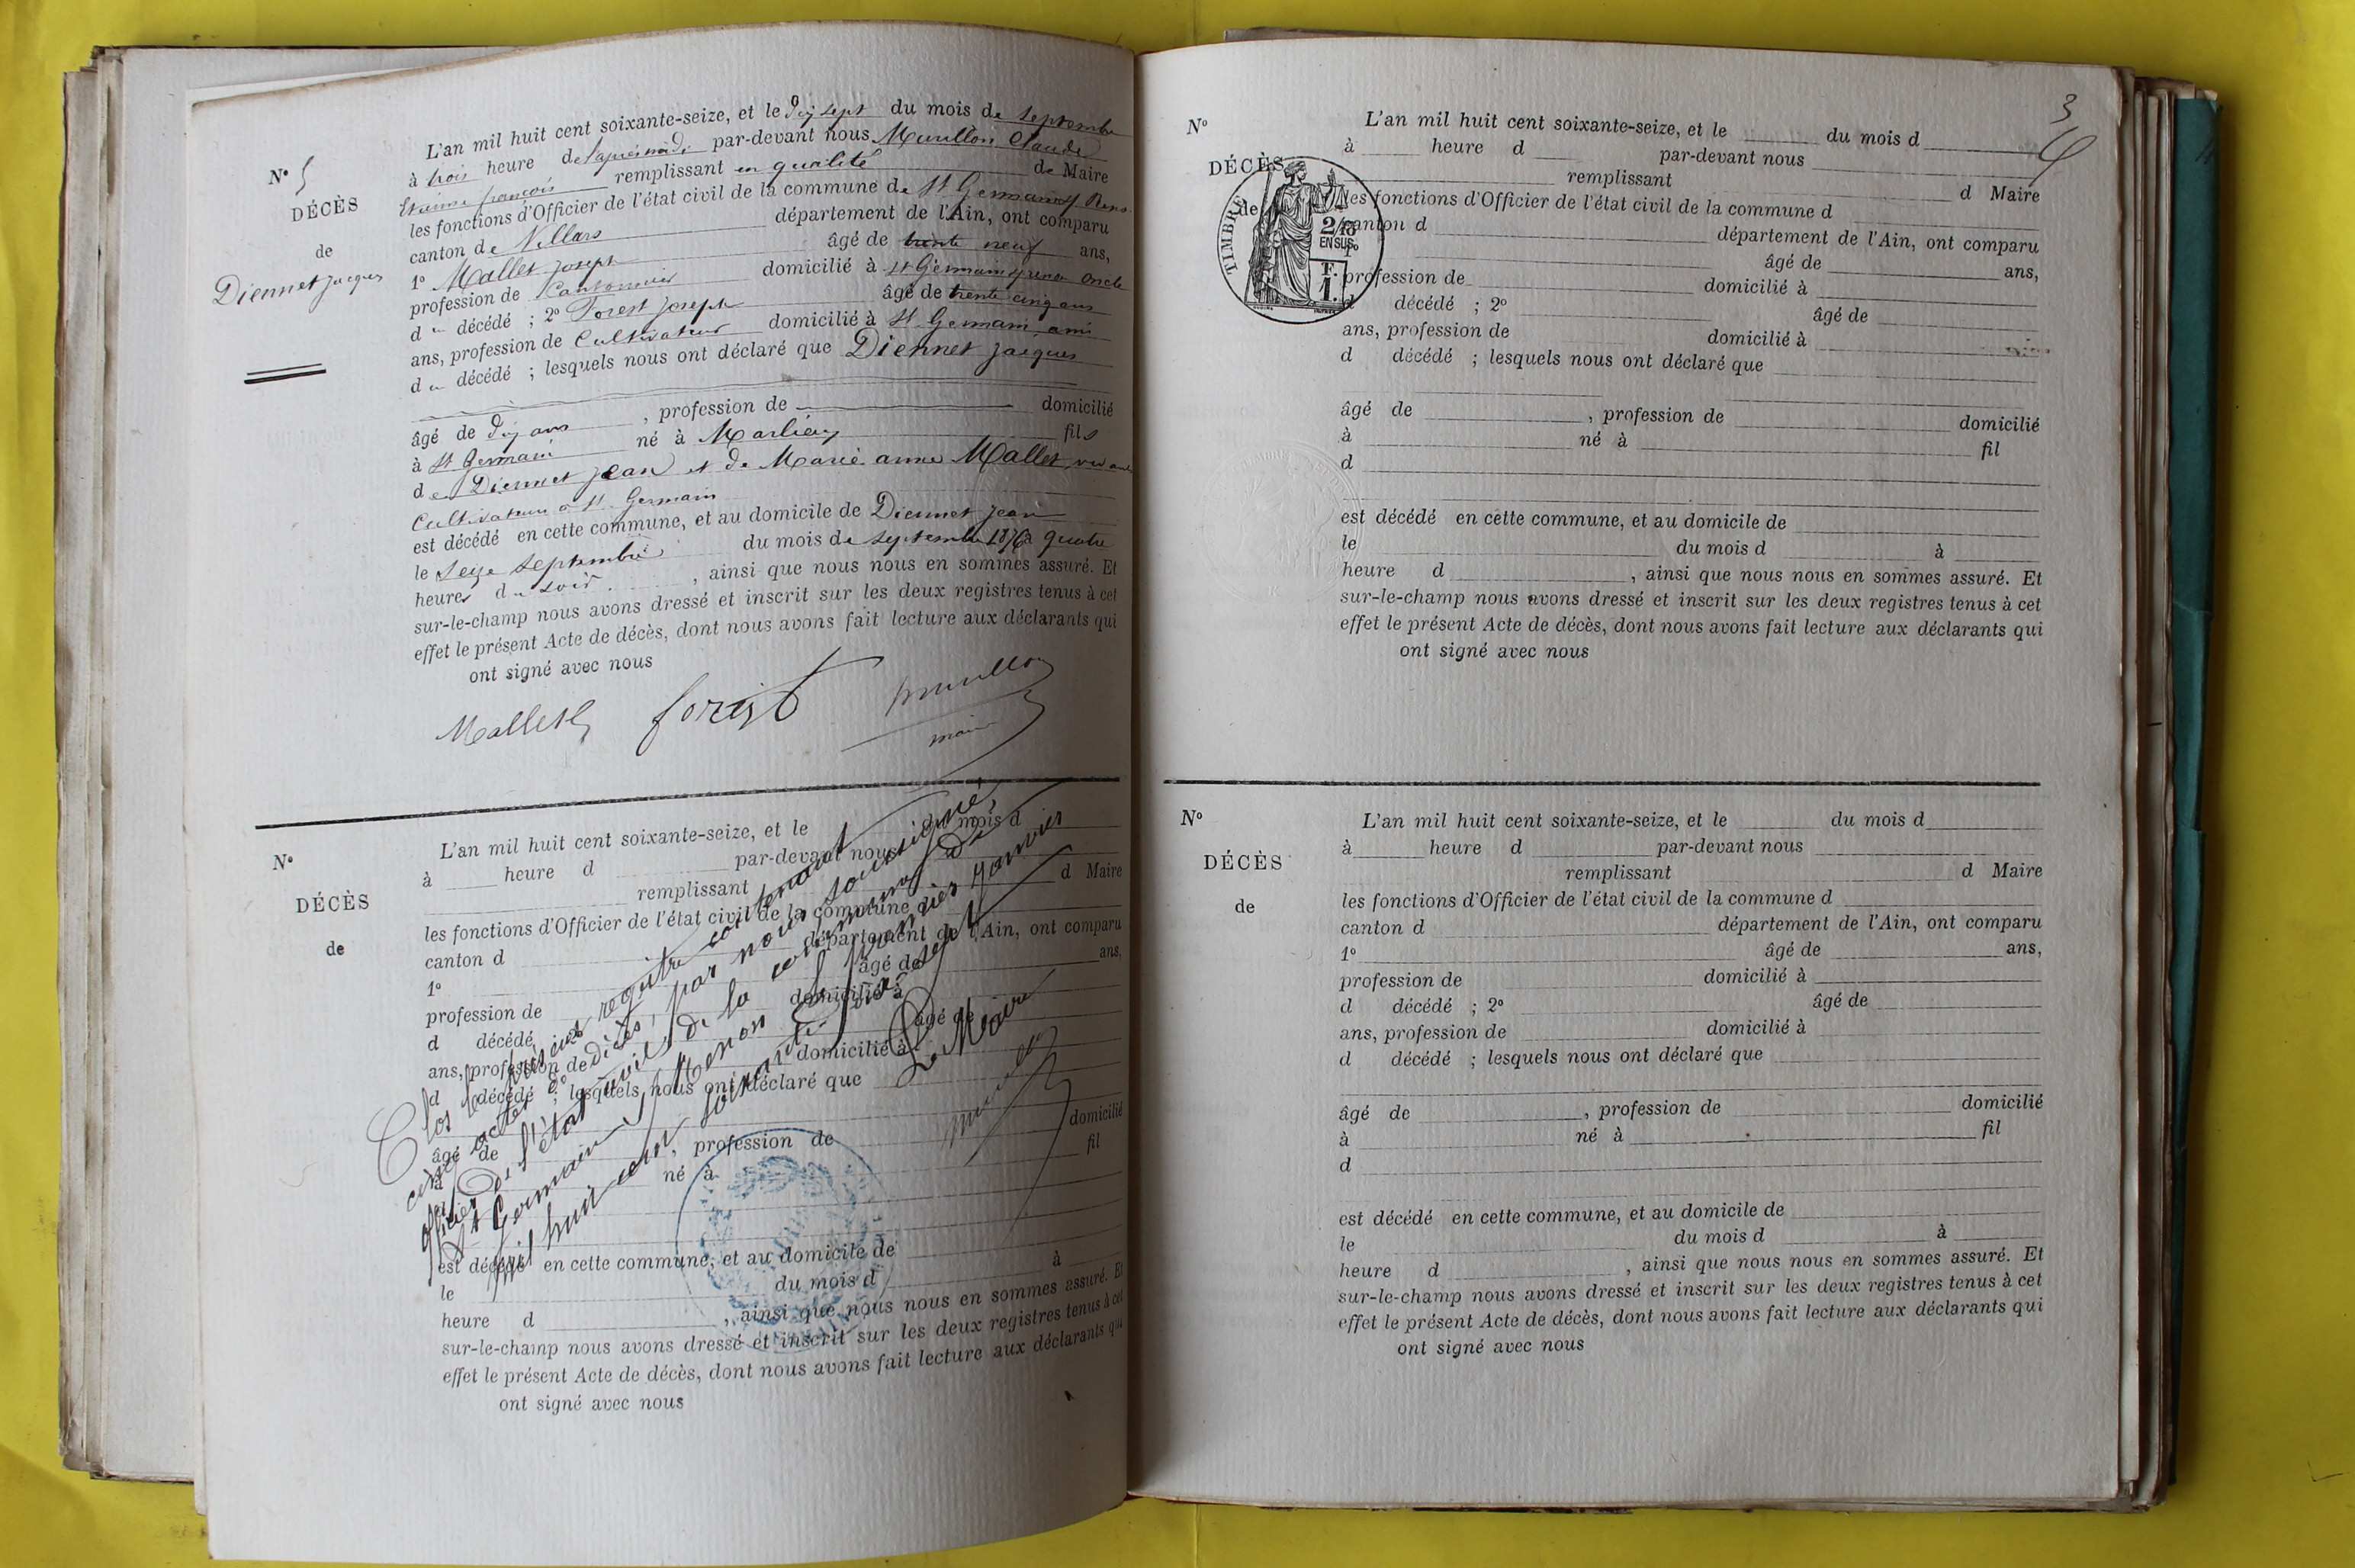 N° 5
DÉCÈS
de
Diennet jacques
L'an mil huit cent soixante-seize, et le dix sept du mois de septembre
à trois heure de l'après midi par-devant nous Murillon Claude
Etienne françois remplissant en qualité de Maire
les fonctions d'Officier de l'état civil de la commune de St Germain
canton de Villars département de l'Ain, ont comparu
1° Mallet joseph âgé de trente neuf ans,
profession de Cantonnier domicilié à St Germain oncle
du décédé ; 2° Forest joseph âgé de trente cinq ans
ans, profession de Cultivateur domicilié à St Germain ami
du décédé ; lesquels nous ont déclaré que Diennet jacques
âgé de dix ans , profession de domicilié
à St Germain né à Marlieux fils
de Diennet jean et de Marie anne Mallet
Cultivateurs à St Germain
est décédé en cette commune, et au domicile de Diennet jean
le seize septembre du mois de septembre 1876 à quatre
heures du soir , ainsi que nous nous en sommes assuré. Et
sur-le-champ nous avons dressé et inscrit sur les deux registres tenus à cet
effet le présent Acte de décès, dont nous avons fait lecture aux déclarants qui
ont signé avec nous
Mallet forest
maire
N°
DÉCÈS
de
L'an mil huit cent soixante-seize, et le du mois d
à heure d par-devant nous
remplissant d Maire
les fonctions d'Officier de l'état civil de la commune d
canton d département de l'Ain, ont comparu
1° âgé de ans,
profession de domicilié à
d décédé ; 2° âgé de
ans, profession de domicilié à
d décédé ; lesquels nous ont déclaré que
âgé de , profession de domicilié
à né à fil
d
est décédé en cette commune, et au domicile de
le du mois d à
heure d , ainsi que nous nous en sommes assuré. Et
sur-le-champ nous avons dressé et inscrit sur les deux registres tenus à cet
effet le présent Acte de décès, dont nous avons fait lecture aux déclarants qui
ont signé avec nous
Clos le présent registre contenant
cinq actes de décès, par nous soussigné,
officier de l'état civil de la commune de
St Germain s/ Renon le premier janvier
mil huit cent soixante dix sept
Le Maire
3
N°
DÉCÈS
de
TIMBRE
2/10
EN SUS
F.
1.
L'an mil huit cent soixante-seize, et le du mois d
à heure d par-devant nous
remplissant d Maire
les fonctions d'Officier de l'état civil de la commune d
canton d département de l'Ain, ont comparu
1° âgé de ans,
profession de domicilié à
d décédé ; 2° âgé de
ans, profession de domicilié à
d décédé ; lesquels nous ont déclaré que
âgé de , profession de domicilié
à né à fil
d
est décédé en cette commune, et au domicile de
le du mois d à
heure d , ainsi que nous nous en sommes assuré. Et
sur-le-champ nous avons dressé et inscrit sur les deux registres tenus à cet
effet le présent Acte de décès, dont nous avons fait lecture aux déclarants qui
ont signé avec nous
N°
DÉCÈS
de
L'an mil huit cent soixante-seize, et le du mois d
à heure d par-devant nous
remplissant d Maire
les fonctions d'Officier de l'état civil de la commune d
canton d département de l'Ain, ont comparu
1° âgé de ans,
profession de domicilié à
d décédé ; 2° âgé de
ans, profession de domicilié à
d décédé ; lesquels nous ont déclaré que
âgé de , profession de domicilié
à né à fil
d
est décédé en cette commune, et au domicile de
le du mois d à
heure d , ainsi que nous nous en sommes assuré. Et
sur-le-champ nous avons dressé et inscrit sur les deux registres tenus à cet
effet le présent Acte de décès, dont nous avons fait lecture aux déclarants qui
ont signé avec nous